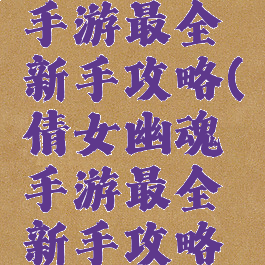 手游最全
新手攻略(
倩女幽魂
手游最全
新手攻略